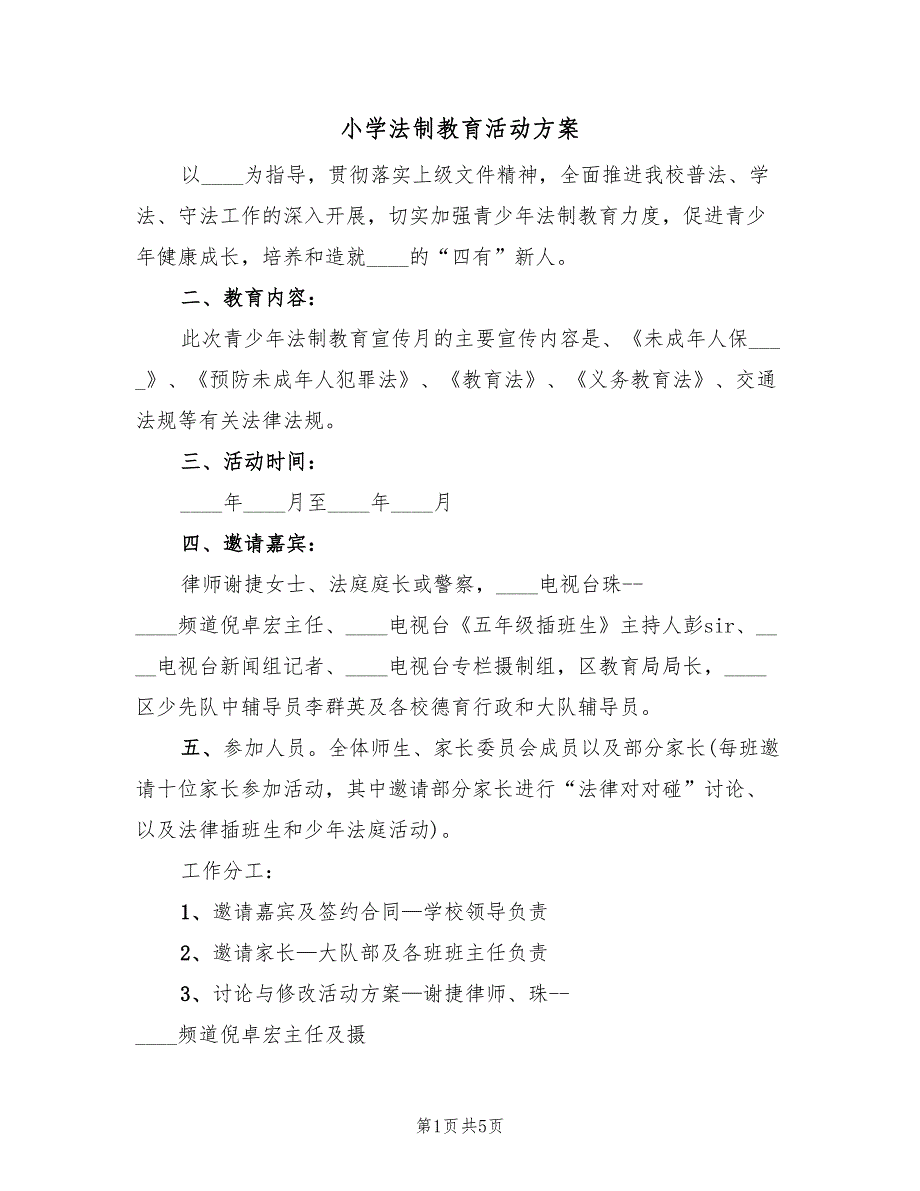 小学法制教育活动方案
以____为指导，贯彻落实上级文件精神，全面推进我校普法、学
法、守法工作的深入开展，切实加强青少年法制教育力度，促进青少
年健康成长，培养和造就____的“四有”新人。
二、教育内容：
此次青少年法制教育宣传月的主要宣传内容是、《未成年人保___
_》、《预防未成年人犯罪法》、《教育法》、《义务教育法》、交通
法规等有关法律法规。
三、活动时间：
____年____月至____年____月
四、邀请嘉宾：
律师谢捷女士、法庭庭长或警察，____电视台珠--
____频道倪卓宏主任、____电视台《五年级插班生》主持人彭sir、__
__电视台新闻组记者、____电视台专栏摄制组，区教育局局长，____
区少先队中辅导员李群英及各校德育行政和大队辅导员。
五、参加人员。全体师生、家长委员会成员以及部分家长(每班邀
请十位家长参加活动，其中邀请部分家长进行“法律对对碰”讨论、
以及法律插班生和少年法庭活动)。
工作分工：
1、邀请嘉宾及签约合同—学校领导负责
2、邀请家长—大队部及各班班主任负责
3、讨论与修改活动方案—谢捷律师、珠--
____频道倪卓宏主任及摄
第1页共5页